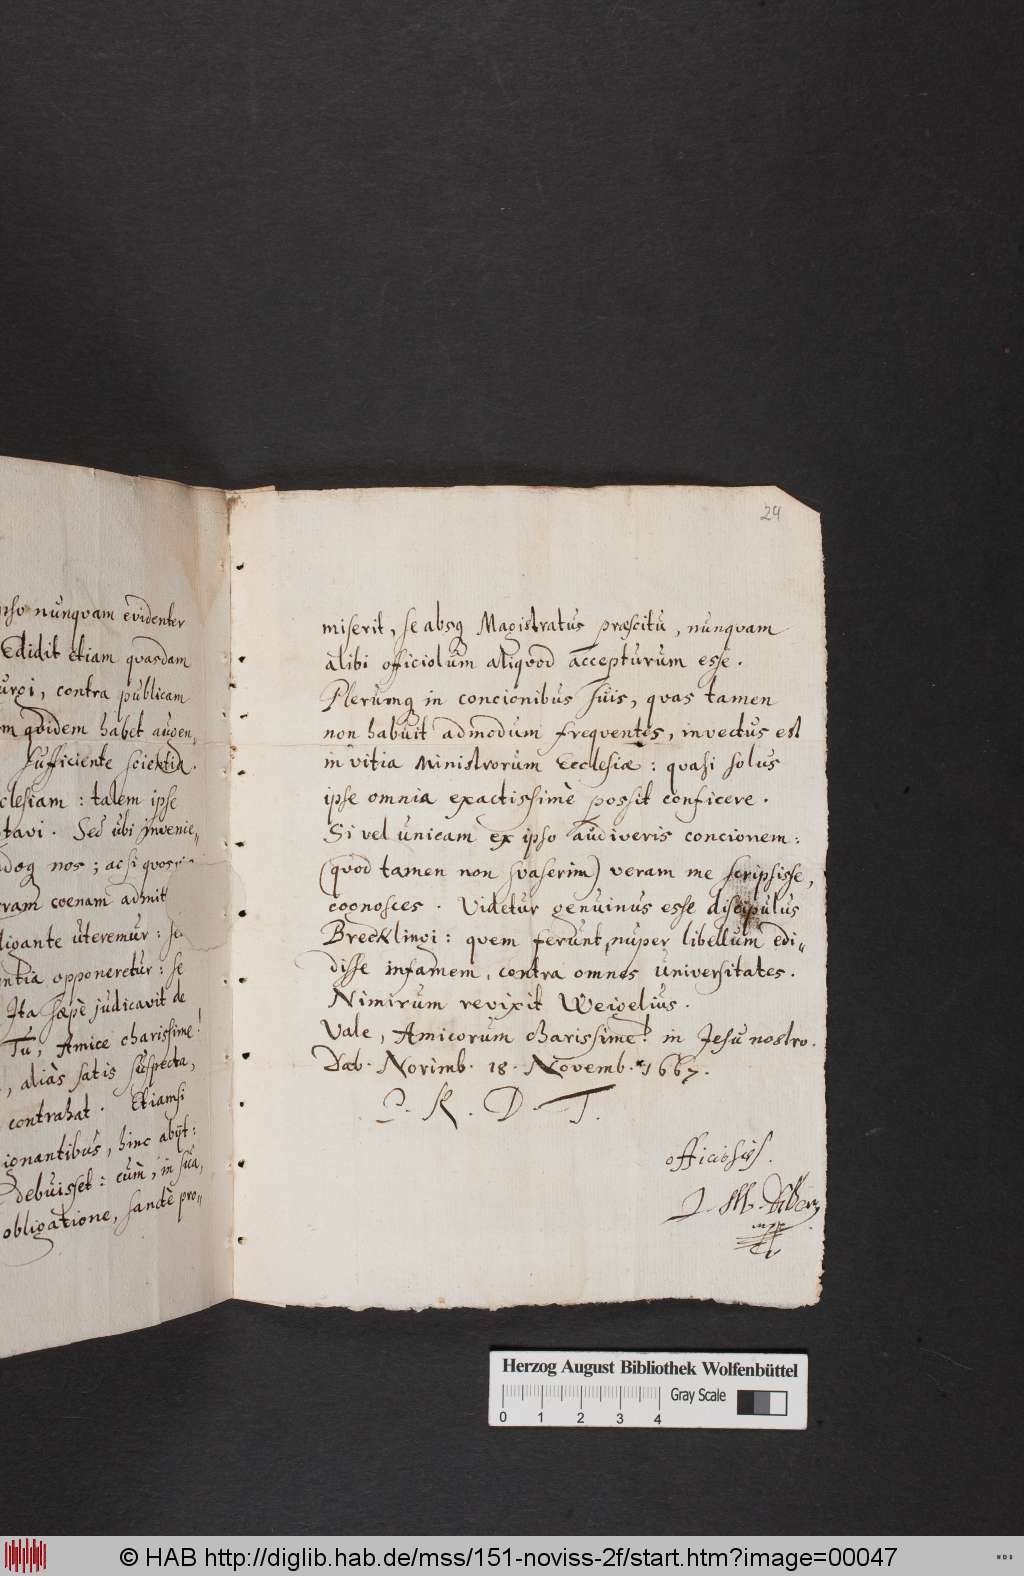 ipso nunqvam evidenter
Edidit etiam qvasdam
urgi, contra publicam
m qvidem habet augen„
sufficiente scientia.
clesiam : talem ipse
tavi. Sed ubi invenie„
adeoq nos ; ac si qvos
cram coenam admit
ligante uteremur : se
entia opponeretur : se
Ita saepè judicavit de
Tu, Amice charissime!
, aliàs satis suspecta,
contrahat. Etiamsi
ignantibus, hinc abijt :
debuisset : cùm, in sua,
obligatione, sanctè pro„
24
miserit, se absq Magistratus praescitu, nunqvam
alibi officiolum aliqvod accepturum esse.
Plerumq in concionibus suis, qvas tamen
non habuit admodum freqventes, invectus est
in vitia Ministrorum Ecclesiae : qvasi solus
ipse omnia exactissimè possit conficere.
Si vel unicam ex ipso audiveris concionem :
(qvod tamen non svaserim) veram me scripsisse,
cognosces. Videtur genuinus esse discipulus
Brecklingi : qvem ferunt, nuper libellum edi„
disse infamem, contra omnes Universitates.
Nimirum revixit Weigelius.
Vale, Amicorum charissime! in Jesu nostro.
Dab. Norimb. 18. Novemb. 1667.
P. R. D. T.
officiosiss.
J. M. Dilherr
mpp
Herzog August Bibliothek Wolfenbüttel
Gray Scale
0 1 2 3 4
© HAB http://diglib.hab.de/mss/151-noviss-2f/start.htm?image=00047